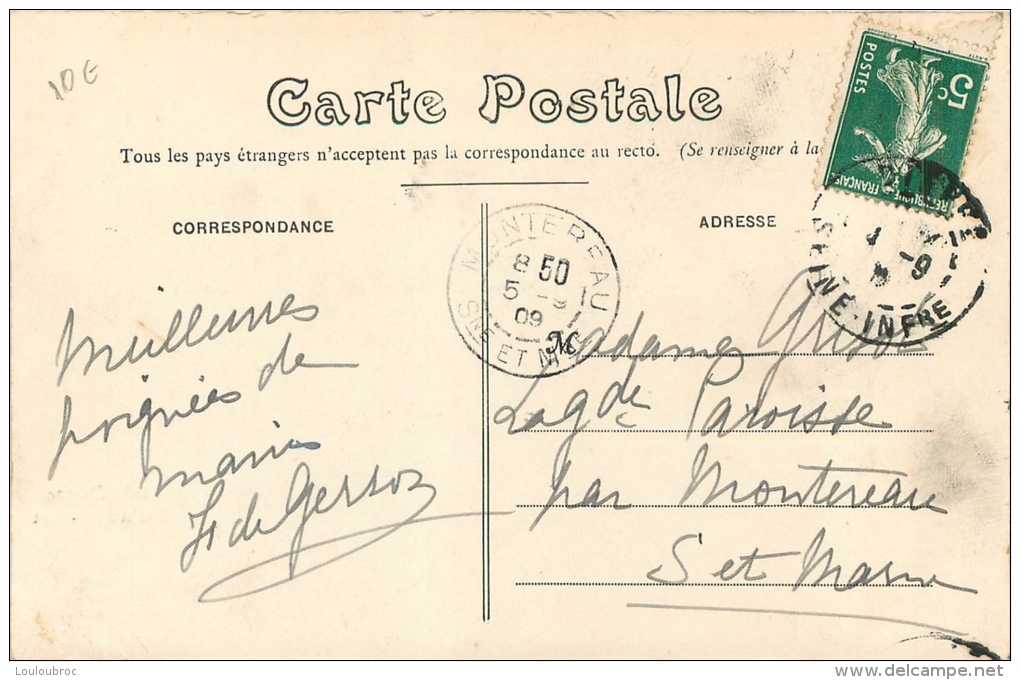 10 €
Carte Postale
Tous les pays étrangers n'acceptent pas la correspondance au recto. (Se renseigner à la
CORRESPONDANCE
ADRESSE
5c
POSTES
REPUBLIQUE FRANÇAISE
MONTEREAU
8 50
5 -9
09
SNE ET M
SEINE-INFRE
-9
Meilleures
poignées de
mains
de Gerson
Madame
de Paroisse
par Montereau
S et Marne
Louloubroc
delcampe.net